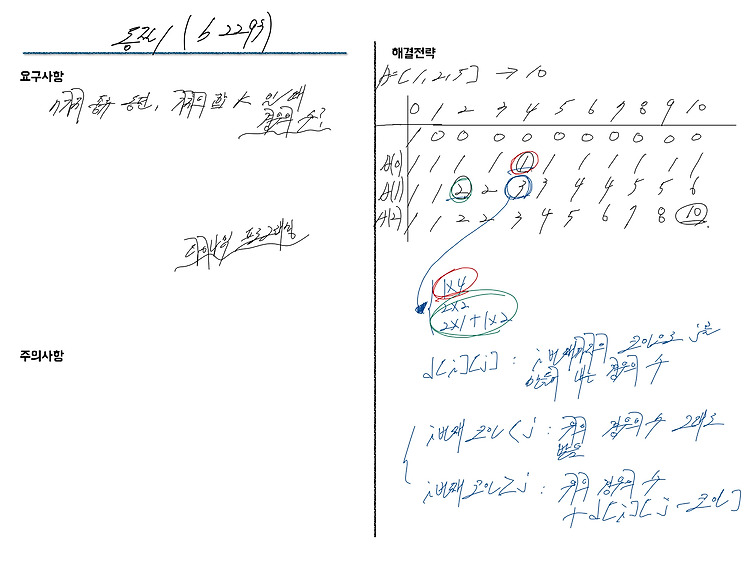 동전1 (b 2293)
요구사항
n가지 종류 동전, 가치의 합 k 인/때
경우의 수?
다이나믹 프로그래밍
주의사항
해결전략
A=[1,2,5] → 10
0 1 2 3 4 5 6 7 8 9 10
1 0 0 0 0 0 0 0 0 0 0
A(0) 1 1 1 1 1 1 1 1 1 1 1
A(1) 1 1 2 2 3 3 4 4 5 5 6
A(2) 1 1 2 2 3 4 5 6 7 8 10
1x4
2x2
2x1+1x2
d[i][j] : i번째까지의 코인으로 j를
만들어 내는 경우의 수
i번째 코인<j : 경우의 수 그대로
받음
i번째 코인≥j : 경우의 수
+d[i][j-코인]